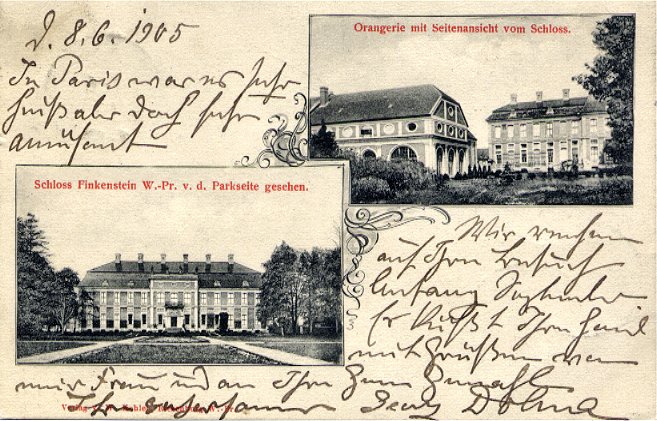 d. 8.6. 1905
In Paris war es sehr
heiß aber doch sehr
amüsant
Orangerie mit Seitenansicht vom Schloss.
Schloss Finkenstein W.-Pr. v. d. Parkseite gesehen.
Wir rechnen
auf Ihren Besuch
Anfang September
Er küßt Ihre Hand
mit Grüßen von
meiner Frau und an Ihren Herrn Gemahl
Ihr gehorsamer Dohna
Verlag